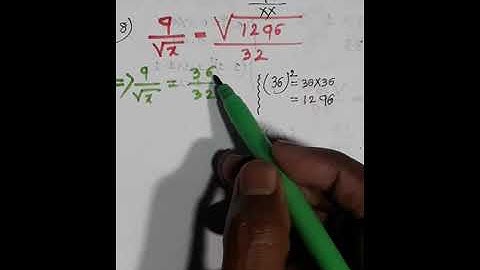 8) 9/√x = √1296/32
=> 9/√x = 36/32
(36)² = 36×36
= 1296